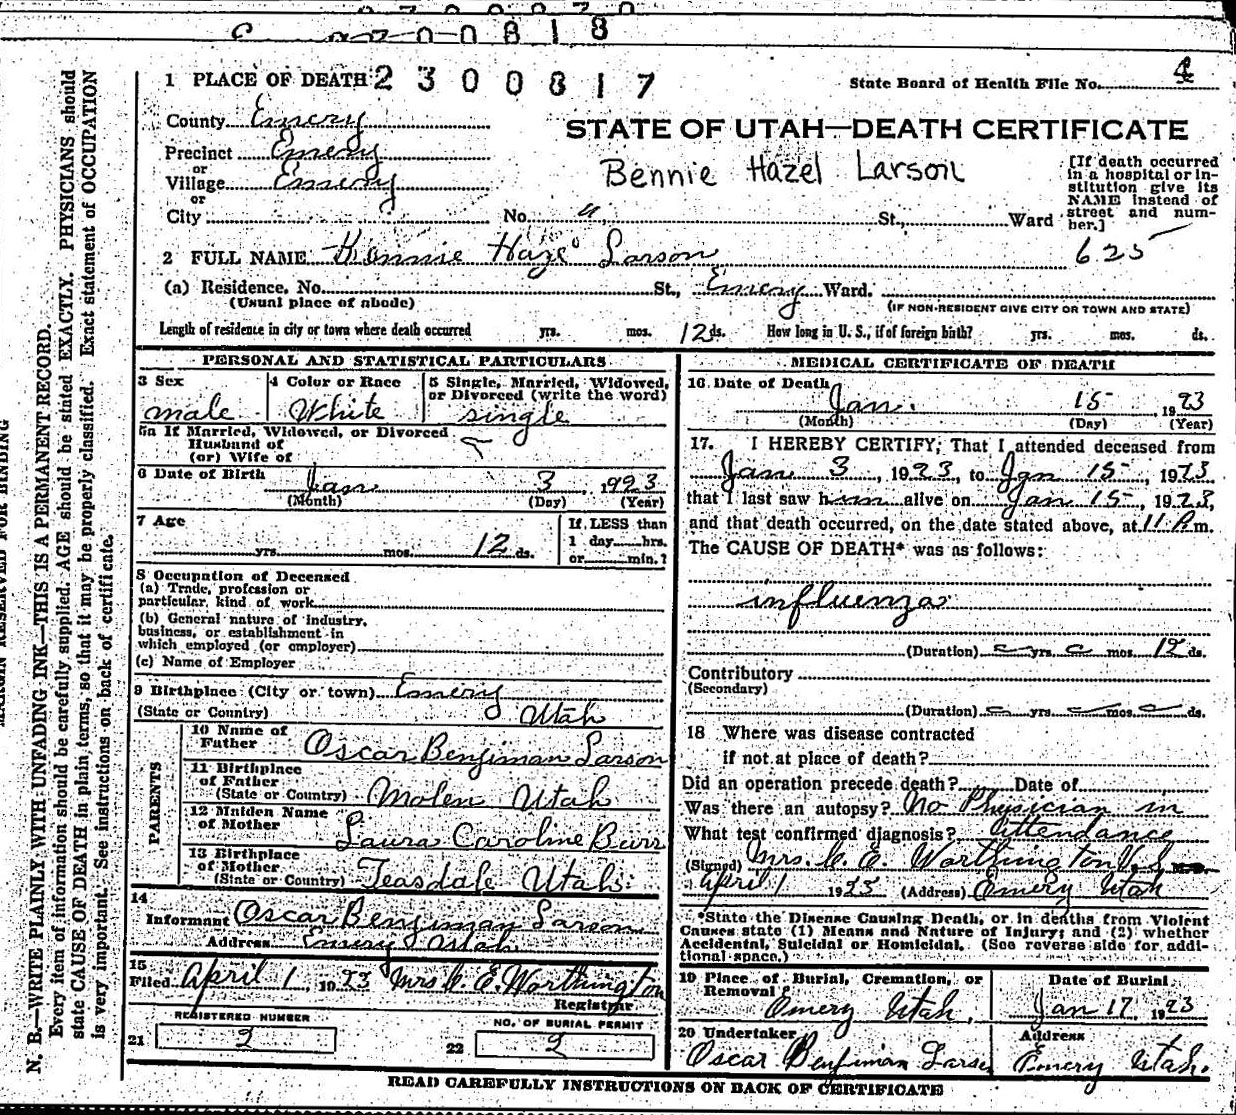 00818
1 PLACE OF DEATH 2300817
State Board of Health File No. 4
County Emery
STATE OF UTAH—DEATH CERTIFICATE
Precinct Emery
or
Village Emery
or
Bennie Hazel Larson
[If death occurred in a hospital or in-stitution give its NAME instead of street and num-ber.]
City No. St., Ward
625
2 FULL NAME Bennie Hazel Larson
(a) Residence, No. St., Emery Ward.
(Usual place of abode) (IF NON-RESIDENT GIVE CITY OR TOWN AND STATE)
Length of residence in city or town where death occurred yrs. mos. 12 ds. How long in U. S., if of foreign birth? yrs. mos. ds.
PERSONAL AND STATISTICAL PARTICULARS
3 Sex 4 Color or Race 5 Single, Married, Widowed, or Divorced (write the word)
male White single
5a If Married, Widowed, or Divorced
Husband of
(or) Wife of
6 Date of Birth Jan 3, 1923
(Month) (Day) (Year)
7 Age If LESS than
yrs. mos. 12 ds. 1 day hrs.
or min.?
8 Occupation of Deceased
(a) Trade, profession or
particular kind of work
(b) General nature of industry,
business, or establishment in
which employed (or employer)
(c) Name of Employer
9 Birthplace (City or town) Emery
(State or Country) Utah
PARENTS
10 Name of Father Oscar Benjiman Larson
11 Birthplace
of Father
(State or Country) Molen Utah
12 Maiden Name
of Mother Laura Caroline Burr
13 Birthplace
of Mother
(State or Country) Teasdale Utah
14
Informant Oscar Benjiman Larson
Address Emery Utah
15
Filed April 1 1923 Mrs. C. E. Worthington
Registrar
REGISTERED NUMBER NO. OF BURIAL PERMIT
21 2 22 2
MEDICAL CERTIFICATE OF DEATH
16 Date of Death
Jan. 15 1923
(Month) (Day) (Year)
17. I HEREBY CERTIFY; That I attended deceased from
Jan 3, 1923, to Jan 15, 1923
that I last saw him alive on Jan 15, 1923,
and that death occurred, on the date stated above, at 11 P m.
The CAUSE OF DEATH* was as follows:
influenza
(Duration) yrs. mos. 12 ds.
Contributory
(Secondary)
(Duration) yrs mos ds.
18 Where was disease contracted
if not at place of death?
Did an operation precede death? Date of
Was there an autopsy? No Physician in
What test confirmed diagnosis? Attendance
(Signed) Mrs. C. E. Worthington
April 1 1923 (Address) Emery Utah
*State the Disease Causing Death, or in deaths from Violent
Causes state (1) Means and Nature of Injury; and (2) whether
Accidental, Suicidal or Homicidal. (See reverse side for addi-
tional space.)
19 Place of Burial, Cremation, or Removal Date of Burial
Emery Utah. Jan 17 1923
20 Undertaker Address
Oscar Benjiman Larson Emery Utah.
READ CAREFULLY INSTRUCTIONS ON BACK OF CERTIFICATE
MARGIN RESERVED FOR BINDING
N. B.—WRITE PLAINLY WITH UNFADING INK—THIS IS A PERMANENT RECORD.
Every item of information should be carefully supplied. AGE should be stated EXACTLY. PHYSICIANS should
state CAUSE OF DEATH in plain terms, so that it may be properly classified. Exact statement of OCCUPATION
is very important. See instructions on back of certificate.